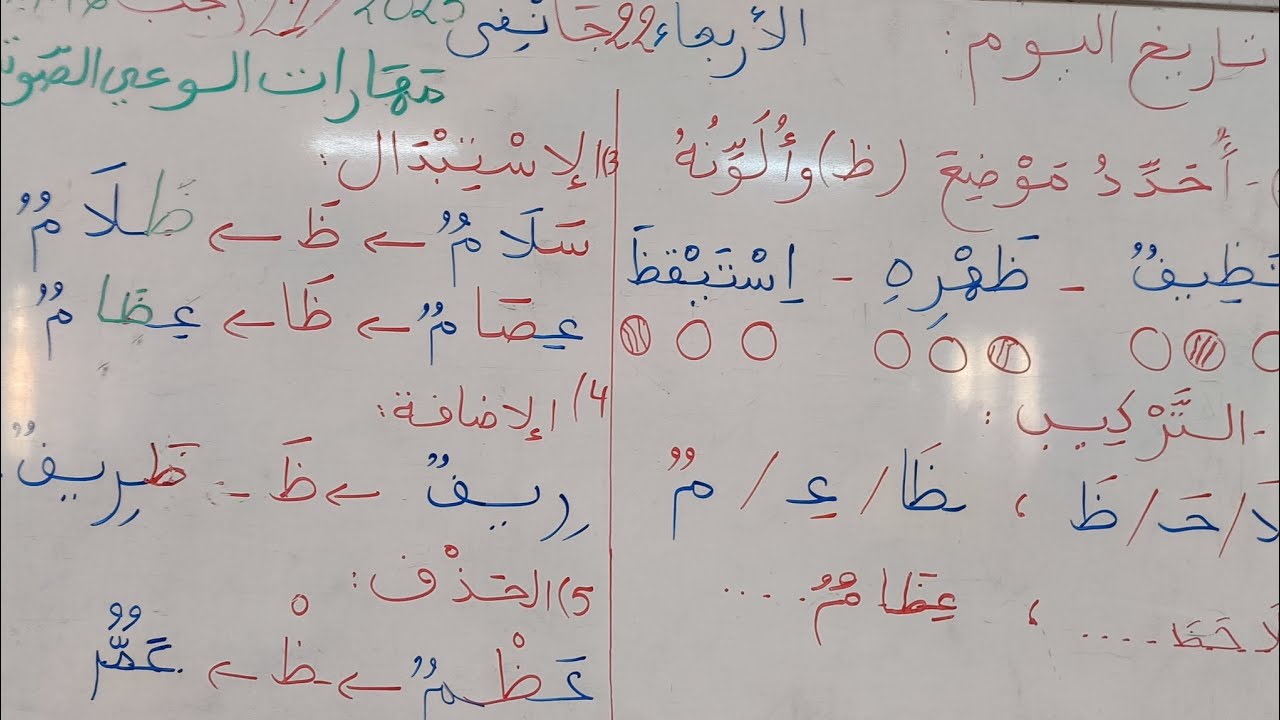 تاريخ اليوم: الأربعاء 22 جَانْفِي 2025
مَهَارات الوعي
أُحَدِّدُ مَوْضِعَ (ظ) وأُلَوِّنُهُ
نَظِيفٌ - ظَهْرِهِ - اِسْتَيْقَظَ
- التَّرْكِيب:
لَا/حَ/ظَ ، ظَا/عِ/مٌ
لَاحَظَ .... ، عِظَامٌ ....
3) الإسْتِبْدَال:
سَلَامٌ ← ظَ ← ظَلَامٌ
عِصَامٌ ← ظَا ← عِظَامٌ
4) الإضافة:
رِيفٌ ← ظَ - ظَرِيفٌ
5) الحَذْف:
عَظْمٌ ← ظْ ← عَمٌّ